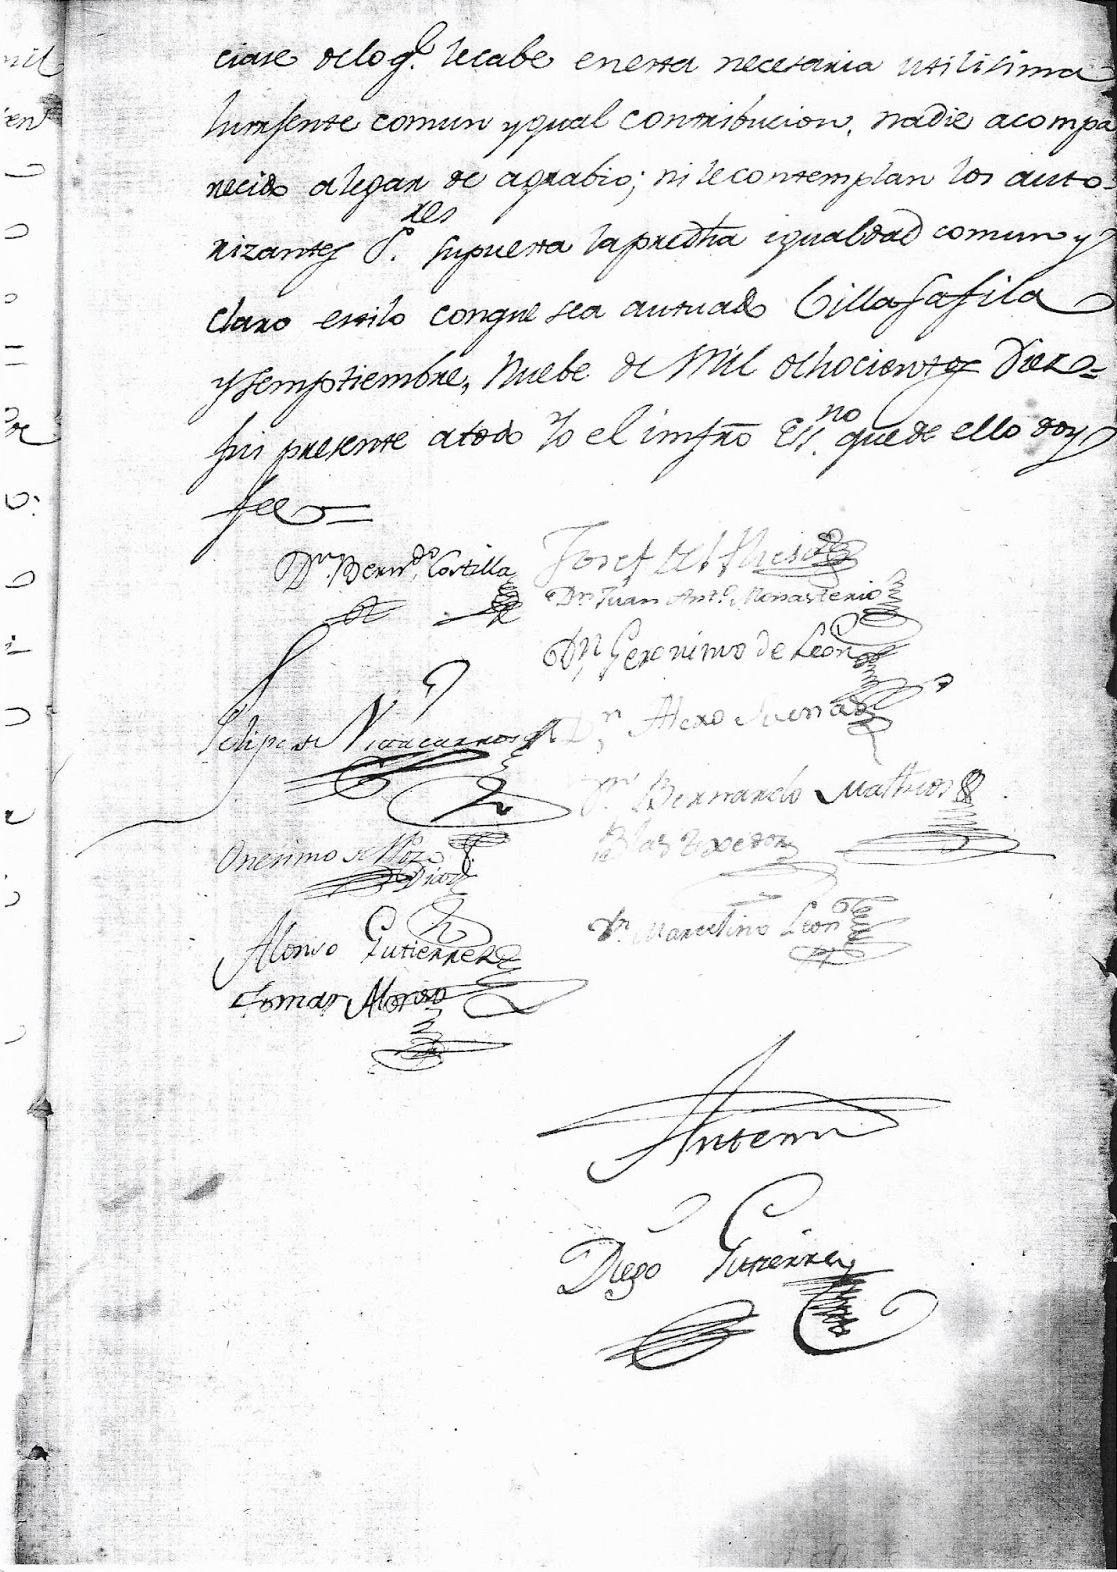 ciase de lo q.e le cabe en esta necesaria utilisima
comun y qual contribucion, nadie a compa
recido alegar de agrabio; ni le contemplan los auto-
rizantes S.res supuesta la predha igualdad comun y
claro estilo con que sea autuado Villafafila
y Semptiembre, Nuebe de Mil ochocientos Diez=
fui presente a todo Yo el infro Ess.no que de ello doy
fee=
Dn. Bern.do Costilla
Josef del
Dn. Juan Ant.o Monasterio
Dn Geronimo de Leon
Felipe de
Dn Alexo
Dn Bernardo Matheos
Onesimo del Pozo
Blas
Alonso Gutierrez
Dn. Marcelino Leon
Tomas Alonso
Antemi
Diego Gutierrez